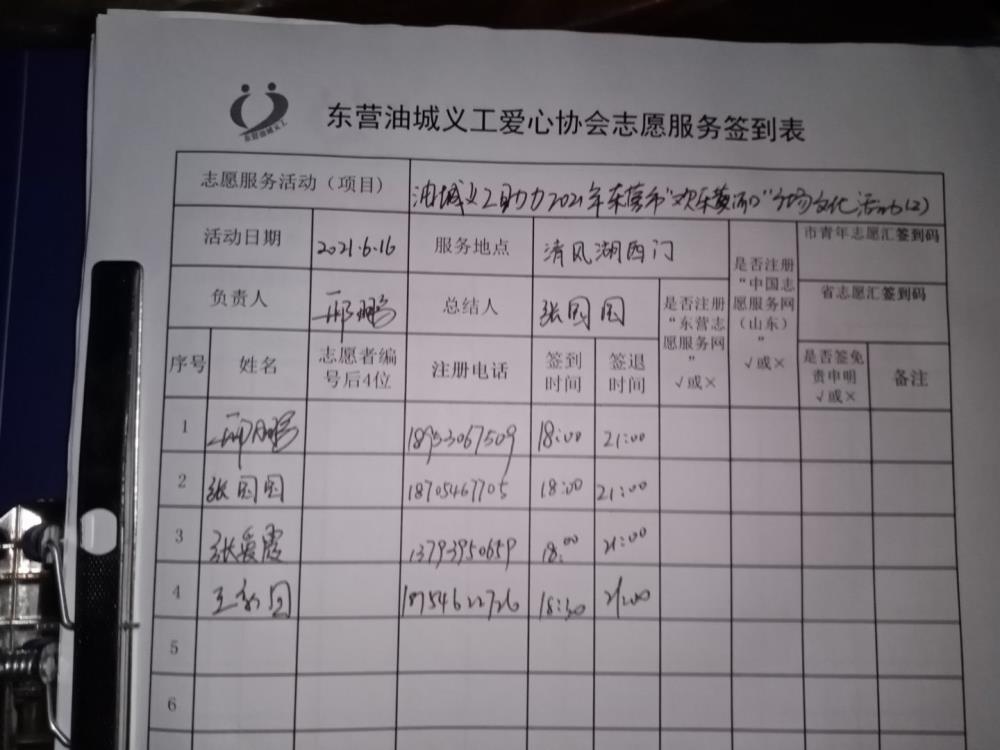 东营油城义工
东营油城义工爱心协会志愿服务签到表
志愿服务活动（项目） 油城义工助力2021年东营市“欢乐黄河口”广场文化活动(2)
活动日期 2021.6.16 服务地点 清风湖西门 是否注册“中国志愿服务网（山东）” √或× 市青年志愿汇签到码
负责人 邢鹏 总结人 张园园 是否注册“东营志愿服务网” √或× 省志愿汇签到码
序号 姓名 志愿者编号后4位 注册电话 签到时间 签退时间 是否签免责申明 √或× 备注
1 邢鹏 18953067509 18:00 21:00
2 张园园 18705467705 18:00 21:00
3 张爱霞 13793950659 18:00 21:00
4 王 18754622726 18:30 21:00
5
6